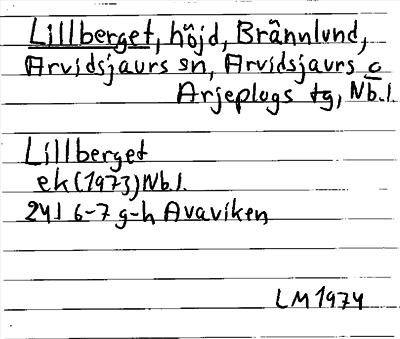 Lillberget, höjd, Brännlund,
Arvidsjaurs sn, Arvidsjaurs o
Arjeplogs tg, Nb.l.
Lillberget
ek (1973) Nb.l.
24I 6-7 g-h Avaviken
LM 1974